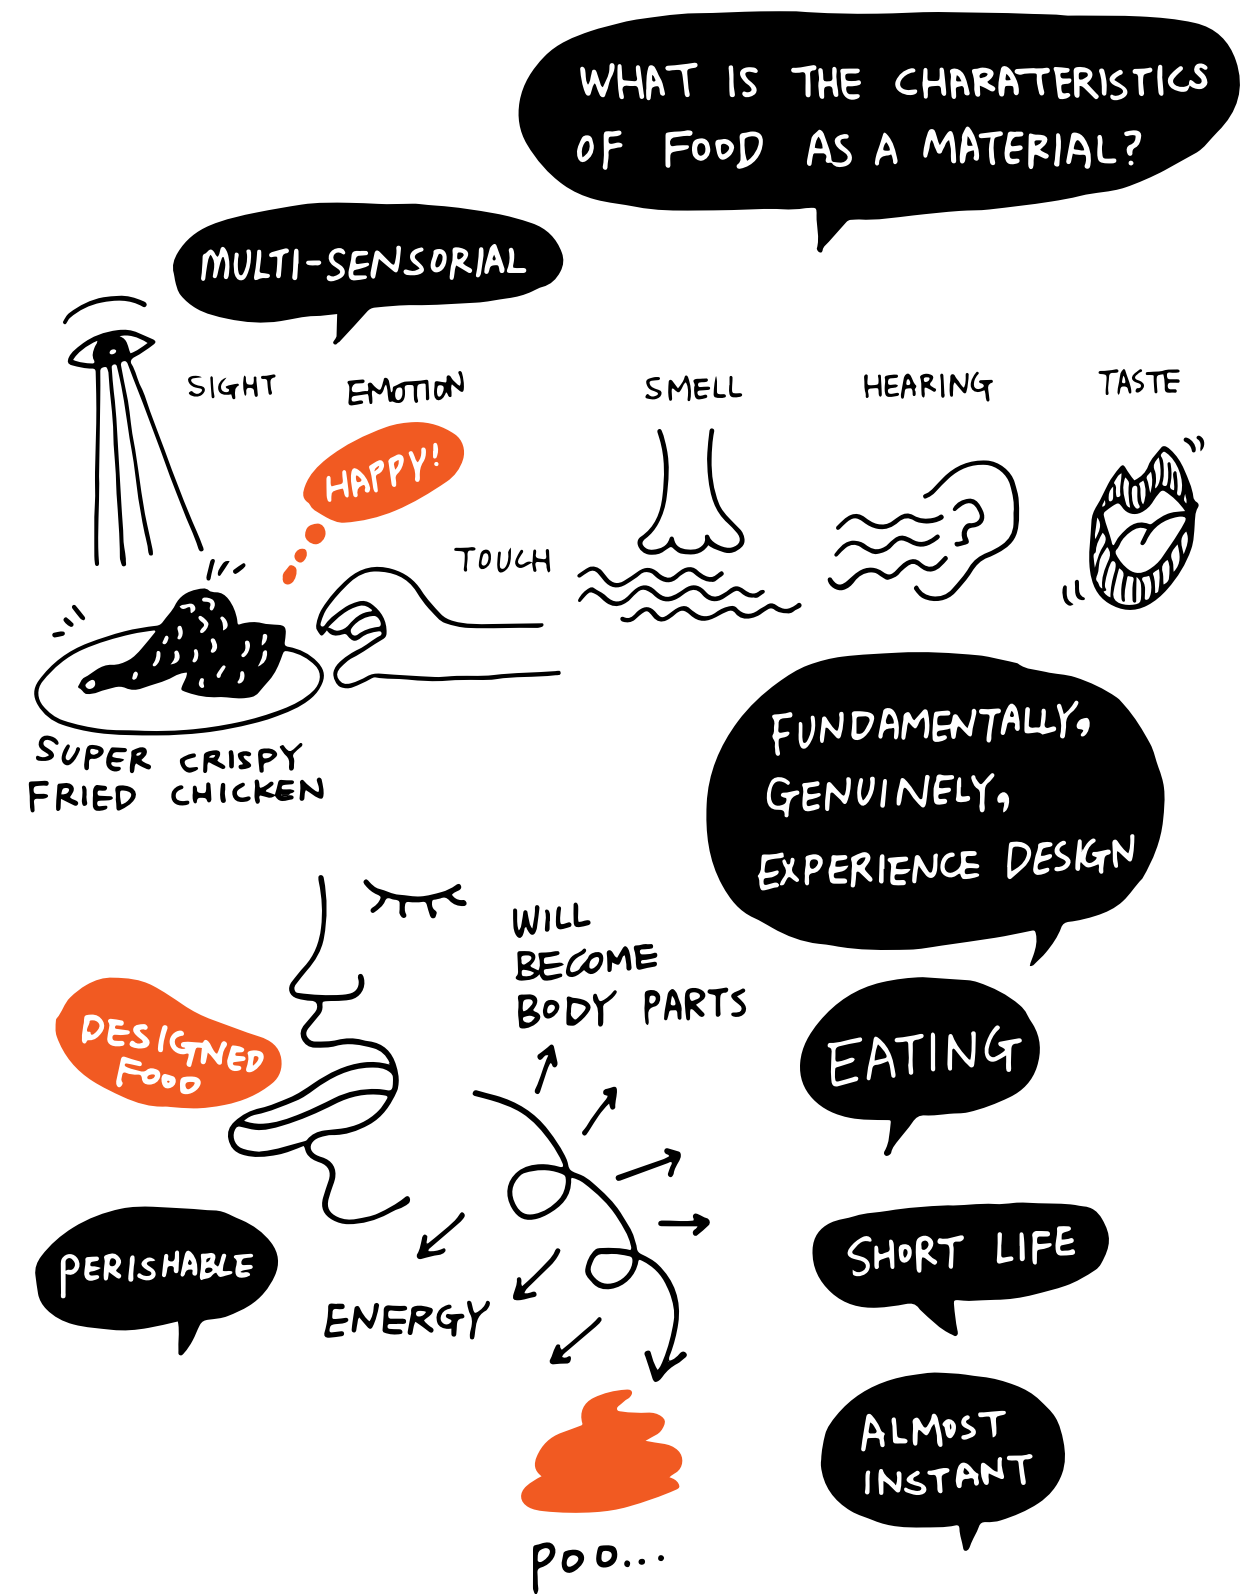 WHAT IS THE CHARATERISTICS
OF FOOD AS A MATERIAL?
MULTI-SENSORIAL
SIGHT
EMOTION
SMELL
HEARING
TASTE
HAPPY!
TOUCH
SUPER CRISPY
FRIED CHICKEN
FUNDAMENTALLY,
GENUINELY,
EXPERIENCE DESIGN
WILL
BECOME
BODY PARTS
DESIGNED
FOOD
EATING
PERISHABLE
ENERGY
SHORT LIFE
ALMOST
INSTANT
POO...